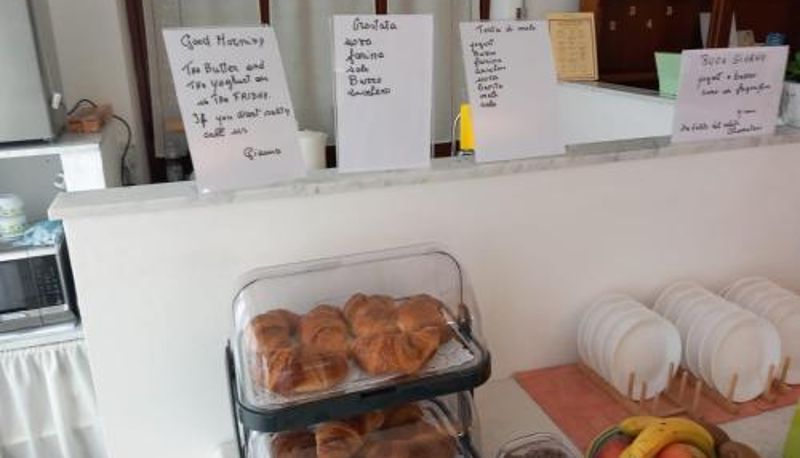 Good Morning
The Butter and
The Yoghurt are
in The FRIDGE.
If you want
call us
Crostata
uova
farina
sale
Burro
zucchero
Torta di mele
yogurt
Burro
farina
zucchero
uova
lievito
mele
sale
BUON GIORNO
yogurt e burro
sono in frigorifero